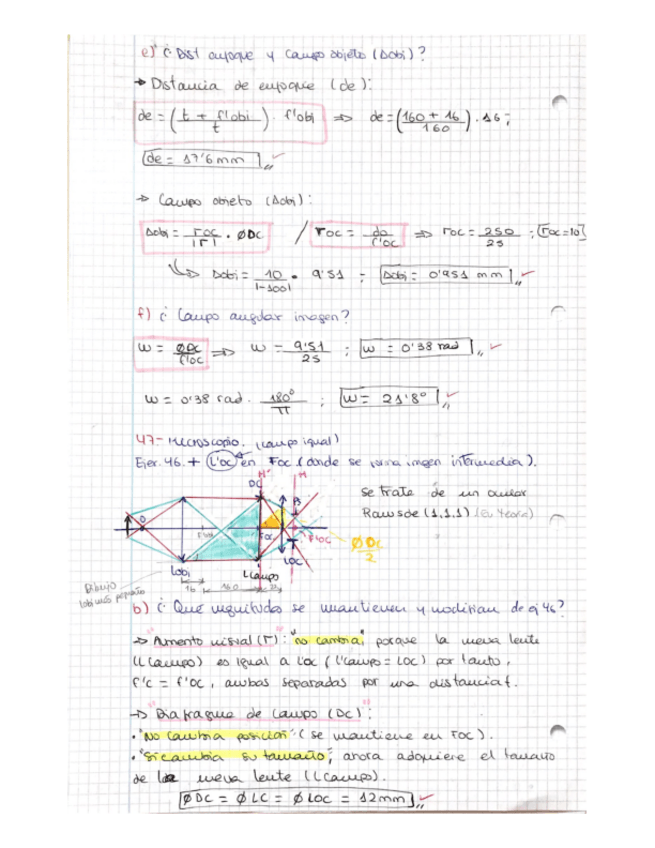 e) ¿Dist enfoque y Campo objeto (Δobj)?
→ Distancia de enfoque (de):
de = (t + f'obj / t) · f'obj ⇒ de = (160 + 16 / 160) · 16;
de = 17'6 mm
→ Campo objeto (Δobj):
Δobj = roc / |Γ| · ØDC / roc = do / f'oc ⇒ roc = 250 / 25 ; roc = 10
Δobj = 10 / |-100| · 9'51 = Δobj = 0'951 mm
f) ¿Campo angular imagen?
W = ØDC / f'oc ⇒ W = 9'51 / 25 ; W = 0'38 rad
W = 0'38 rad · 180° / π ; W = 21'8°
47- Microscopio. (campo igual)
Ejer. 46. + L'oc en Foc (donde se forma imagen intermedia).
H' H
DC
Se trata de un ocular
Ramsde (1,1,1) (En teoría)
Foc
F'oc
ØDC / 2
Lobj
LOC
LCampo
Dibujo
Lobj más pequeño
16 160
b) ¿Qué magnitudes se mantienen y modifican de ej 46?
→ "Aumento visual (Γ)": "no cambia", porque la nueva lente
(LCampo) es igual a L'oc (L'campo = LOC) por tanto,
f'c = f'oc, ambas separadas por una distancia t.
→ "Diafragma de Campo (DC)":
• "No cambia posición" (se mantiene en Foc).
• "Si cambia su tamaño", ahora adquiere el tamaño
de la nueva lente (LCampo).
ØDC = ØLC = ØLOC = 12mm